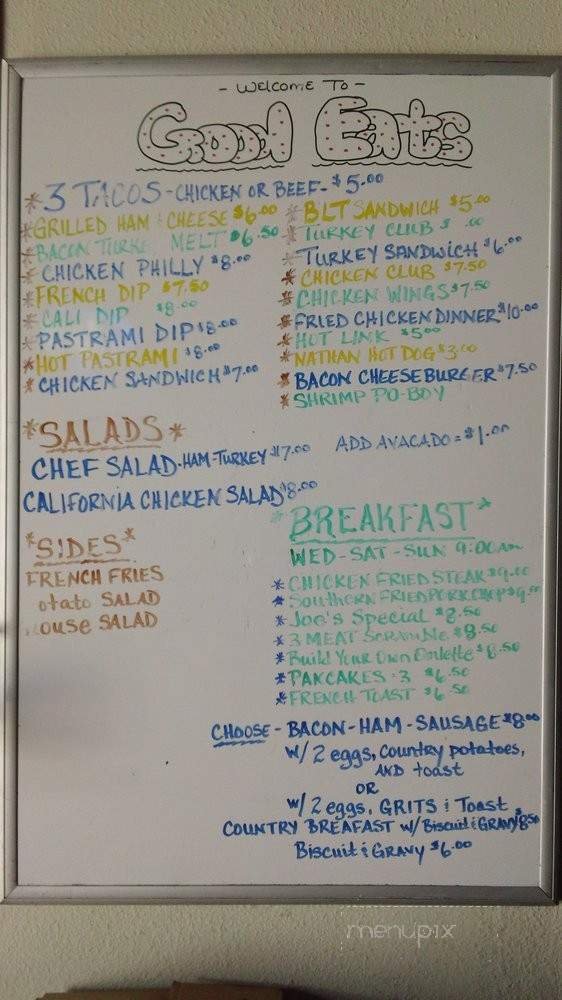 - Welcome To -
Good Eats
*3 TACOS - CHICKEN OR BEEF - $5.00
*GRILLED HAM & CHEESE $6.00
*BACON TURKE MELT $6.50
*CHICKEN PHILLY $8.00
*FRENCH DIP $7.50
*CALI DIP $8.00
*PASTRAMI DIP $8.00
*HOT PASTRAMI $8.00
*CHICKEN SANDWICH $7.00
*BLT SANDWICH $5.00
*TURKEY CLUB $ .00
*TURKEY SANDWICH $6.00
*CHICKEN CLUB $7.50
*CHICKEN WINGS $7.50
*FRIED CHICKEN DINNER $10.00
*HOT LINK $5.00
*NATHAN HOT DOG $3.00
*BACON CHEESEBURGER $7.50
*SHRIMP PO-BOY
*SALADS*
CHEF SALAD-HAM-TURKEY $7.00
ADD AVACADO = $1.00
CALIFORNIA CHICKEN SALAD $8.00
*SIDES*
FRENCH FRIES
otato SALAD
ouse SALAD
*BREAKFAST*
WED-SAT-SUN 9:00am
*CHICKEN FRIED STEAK $9.00
*Southern FRIED PORK CHOP $9.00
*Joe's Special $8.50
*3 MEAT Scramble $8.50
*Build Your Own Omlette $8.50
*PAKCAKES-3 $6.50
*FRENCH TOAST $6.50
CHOOSE - BACON - HAM - SAUSAGE $8.00
w/ 2 eggs, country potatoes,
AND toast
OR
w/ 2 eggs, GRITS & Toast
COUNTRY BREAFAST w/ Biscuit & GRAVY $8.50
Biscuit & GRAVY $6.00
menupix